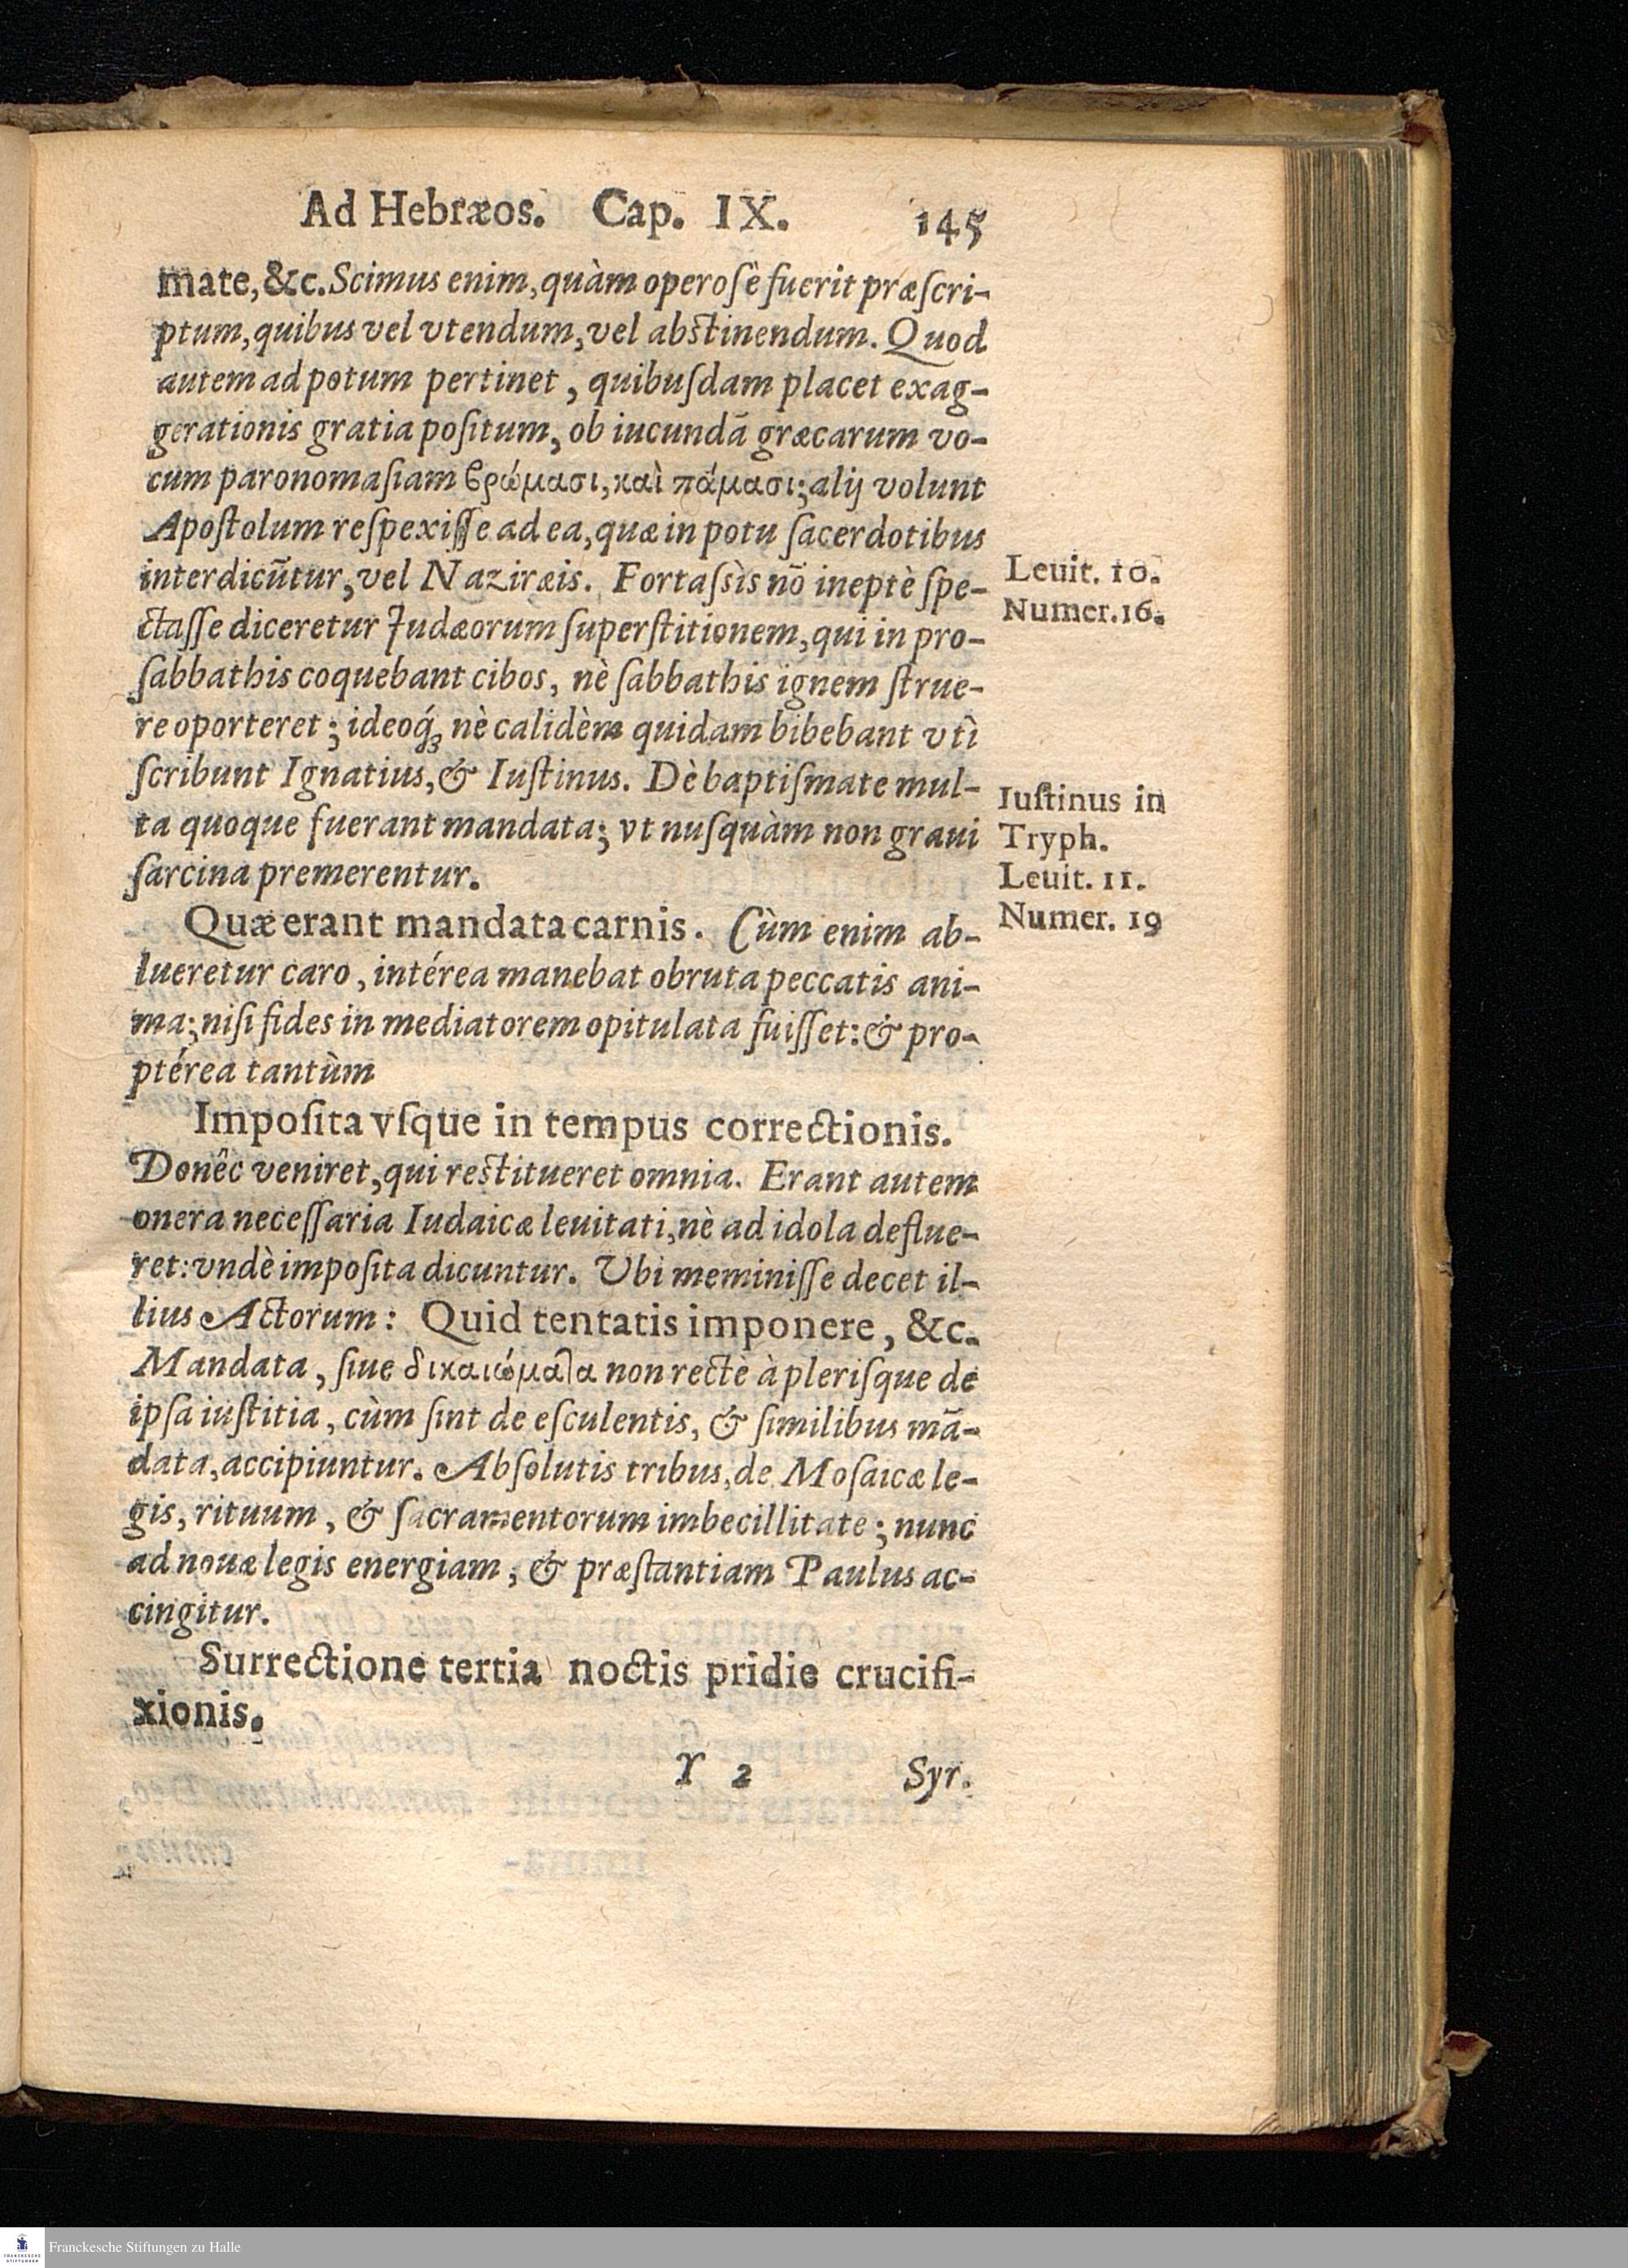 Ad Hebræos. Cap. IX. 145
mate, &c. Scimus enim, quàm operosè fuerit præſcri-
ptum, quibus vel vtendum, vel abſtinendum. Quod
autem ad potum pertinet, quibuſdam placet exag-
gerationis gratia poſitum, ob iucundã græcarum vo-
cum paronomaſiam ϐρώμασι, καὶ πόμασι; alij volunt
Apoſtolum reſpexiſſe ad ea, quæ in potu ſacerdotibus
interdicũtur, vel Naziræis. Fortaſsìs nõ ineptè ſpe-
Leuit. 10.
Numer. 16.
ctaſſe diceretur Judæorum ſuperſtitionem, qui in pro-
ſabbathis coquebant cibos, nè ſabbathis ignem ſtrue-
re oporteret; ideoq́; nè calidèm quidam bibebant vtì
ſcribunt Ignatius, & Iuſtinus. Dè baptiſmate mul-
ta quoque fuerant mandata; vt nuſquàm non graui
ſarcina premerentur.
Iuſtinus in
Tryph.
Leuit. 11.
Numer. 19
Quæ erant mandata carnis. Cùm enim ab-
lueretur caro, intérea manebat obruta peccatis ani-
ma; niſi fides in mediatorem opitulata fuiſſet: & pro-
ptérea tantùm
Impoſita vſque in tempus correctionis.
Donêc veniret, qui reſtitueret omnia. Erant autem
onera neceſſaria Iudaicæ leuitati, nè ad idola deflue-
ret: vndè impoſita dicuntur. Vbi meminiſſe decet il-
lius Actorum: Quid tentatis imponere, &c.
Mandata, ſiue δικαιώμαlα non rectè à pleriſque de
ipſa iuſtitia, cùm ſint de eſculentis, & ſimilibus mã-
data, accipiuntur. Abſolutis tribus, de Moſaicæ le-
gis, rituum, & ſacramentorum imbecillitate; nunc
ad nouæ legis energiam, & præſtantiam Paulus ac-
cingitur.
Surrectione tertia noctis pridie crucifi-
xionis.
Y 2 Syr.
Franckesche Stiftungen zu Halle